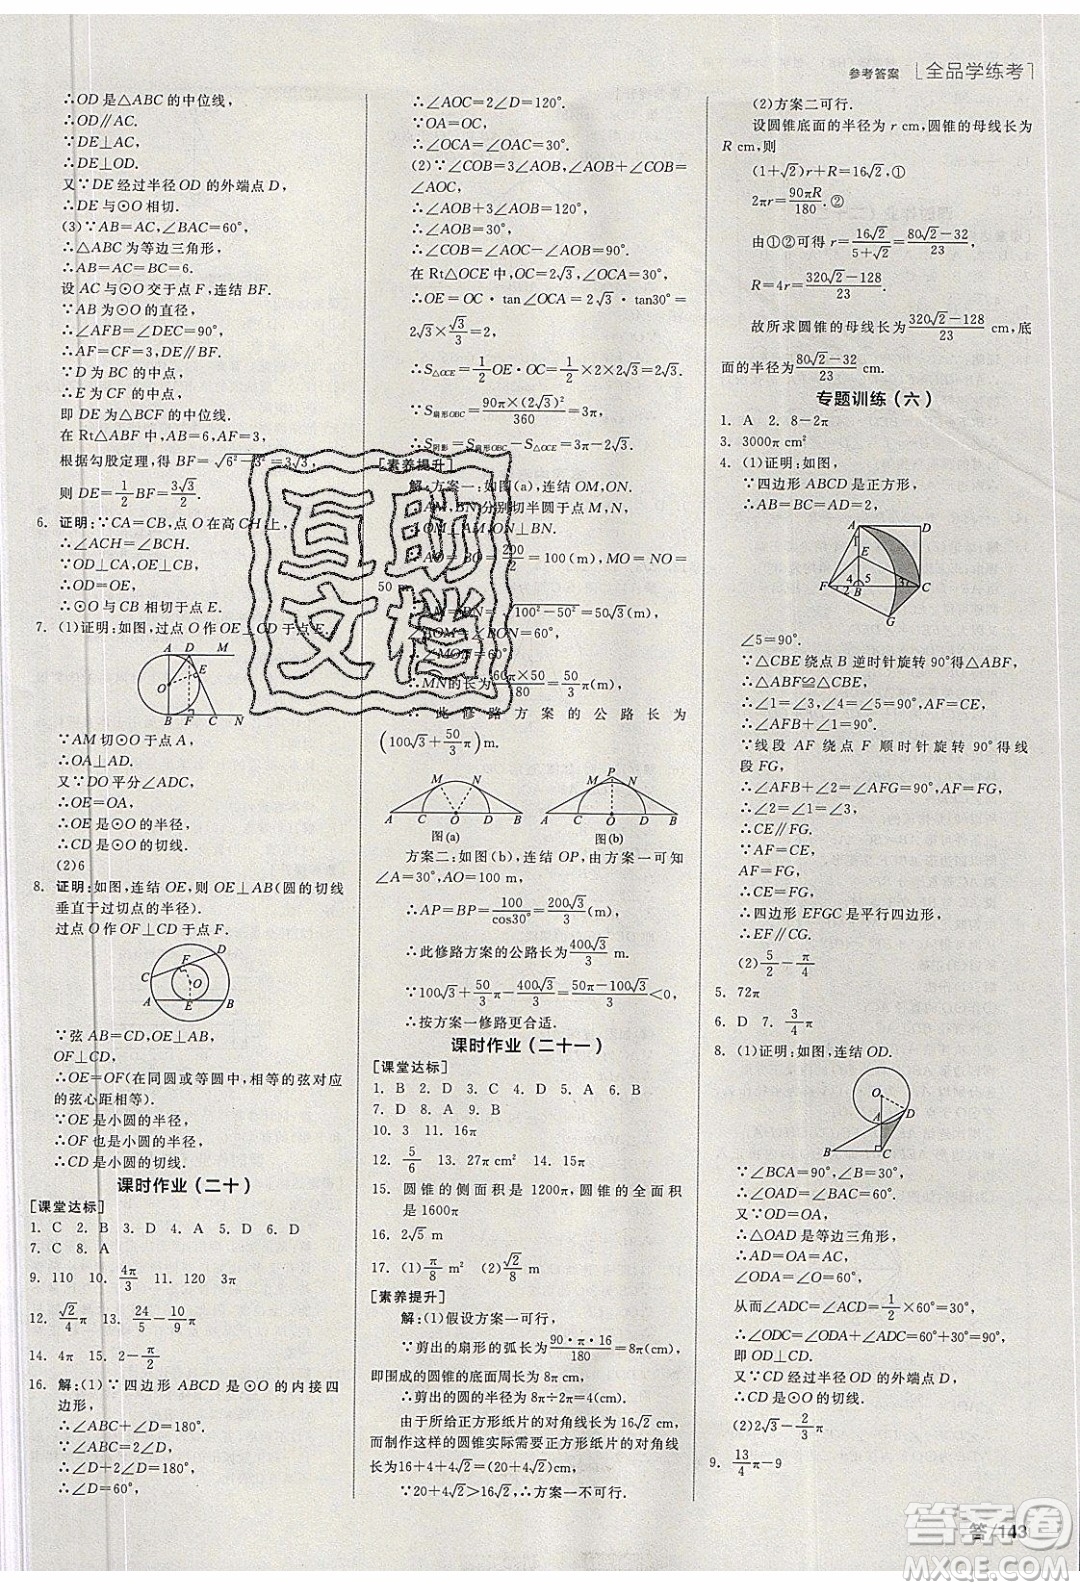 参考答案 [全品学练考]
∴OD是△ABC的中位线,
∴OD∥AC.
∵DE⊥AC,
∴DE⊥OD.
又∵DE经过半径OD的外端点D,
∴DE与⊙O相切.
(3)∵AB=AC,∠BAC=60°,
∴△ABC为等边三角形,
∴AB=AC=BC=6.
设AC与⊙O交于点F,连结BF.
∵AB为⊙O的直径,
∴∠AFB=∠DEC=90°,
∴AF=CF=3,DE∥BF.
∵D为BC的中点,
∴E为CF的中点,
即DE为△BCF的中位线.
在Rt△ABF中,
根据勾股定理,得BF=√(6²-3²)=3√3,
则DE=1/2BF=3√3/2.
6. 证明:∵CA=CB,点O在高CH上,
∴∠ACH=∠BCH.
∵OD⊥CA,OE⊥CB,
∴OD=OE,
∴⊙O与CB相切于点E.
7. (1)证明:如图,过点O作OE⊥CD于点E.
A D M
E
O
B F C N
∵AM切⊙O于点A,
∴OA⊥AD.
又∵DO平分∠ADC,
∴OE=OA,
∵OE是⊙O的半径,
∴CD是⊙O的切线.
(2)6
8. 证明:如图,连结OE,则OE⊥AB(圆的切线
垂直于过切点的半径).
过点O作OF⊥CD于点F.
C F D
O
A E B
∵弦AB=CD,OE⊥AB,
OF⊥CD,
∴OE=OF(在同圆或等圆中,相等的弦对应
的弦心距相等).
∵OE是小圆的半径,
∴OF也是小圆的半径,
∴CD是小圆的切线.
课时作业(二十)
[课堂达标]
1. C 2. B 3. D 4. A 5. D 6. D
7. C 8. A
9. 110 10. 4π/3 11. 120 3π
12. √2/4π 13. 24/5-10/9π
14. 4π 15. 2-π/2
16. 解:(1)∵四边形ABCD是⊙O的内接四
边形,
∴∠ABC+∠D=180°.
∵∠ABC=2∠D,
∴∠D+2∠D=180°,
∴∠D=60°,
∴∠AOC=2∠D=120°.
∵OA=OC,
∴∠OCA=∠OAC=30°.
(2)∵∠COB=3∠AOB,∠COB+∠AOB=
∠AOC,
∴∠AOC=4∠AOB=120°,
∴∠AOB=30°,
∴∠COB=∠AOC-∠AOB=90°.
在Rt△OCE中,OC=2√3,∠OCA=30°,
∴OE=OC·tan∠OCA=2√3·tan30°=
2√3×√3/3=2,
∴S△OCE=1/2OE·OC=1/2×2×2√3=2√3.
∵S扇形OBC=90π×(2√3)²/360=3π,
∴S阴影=S扇形OBC-S△OCE=3π-2√3.
[素养提升]
解:方案一:如图(a),连结OM,ON.
∵AM,BN分别切半圆于点M,N,
∴OM⊥AM,ON⊥BN.
∵AO=BO=200/2=100(m),MO=NO=
50 m,
∴AM=BN=√(100²-50²)=50√3(m),
∠AOM=∠BON=60°,
∴∠MON=60°,
∴MN的长为60π×50/180=50/3π(m),
∴此修路方案的公路长为
(100√3+50/3π)m.
M N
A C O D B
图(a)
P
M N
A C O D B
图(b)
方案二:如图(b),连结OP,由方案一可知
∠A=30°,AO=100 m,
∴AP=BP=100/cos30°=200√3/3(m),
∴此修路方案的公路长为400√3/3 m.
∵100√3+50π/3-400√3/3=50π-100√3/3<0,
∴按方案一修路更合适.
课时作业(二十一)
[课堂达标]
1. B 2. D 3. C 4. D 5. A 6. B
7. D 8. A 9. B
10. 3 11. 16π
12. 5/6 13. 27π cm² 14. 15π
15. 圆锥的侧面积是1200π,圆锥的全面积
是1600π
16. 2√5 m
17. (1)π/8 m² (2)√2/8 m
[素养提升]
解:(1)假设方案一可行.
∵剪出的扇形的弧长为90·π·16/180=8π(cm),
即围成的圆锥的底面周长为8π cm,
∴剪出的圆的半径为8π÷2π=4(cm).
由于所给正方形纸片的对角线长为16√2 cm,
而制作这样的圆锥实际需要正方形纸片的对角线
长为16+4+4√2=(20+4√2)cm,
∵20+4√2>16√2,∴方案一不可行.
(2)方案二可行.
设圆锥底面的半径为r cm,圆锥的母线长为
R cm,则
(1+√2)r+R=16√2,①
2πr=90πR/180.②
由①②可得r=16√2/(5+√2)=(80√2-32)/23,
R=4r=(320√2-128)/23.
故所求圆锥的母线长为(320√2-128)/23 cm,底
面的半径为(80√2-32)/23 cm.
专题训练(六)
1. A 2. 8-2π
3. 3000π cm²
4. (1)证明:如图,
∵四边形ABCD是正方形,
A D
1
E
F 4 5 3 C
2 B
G
∠5=90°.
∵△CBE绕点B逆时针旋转90°得
△ABF,
∴△ABF≌△CBE,
∴∠1=∠3,∠4=∠5=90°,AF=CE,
∴∠AFB+∠1=90°.
∵线段AF绕点F顺时针旋转90°得线
段FG,
∴∠AFB+∠2=∠AFG=90°,AF=FG,
∴∠2=∠1=∠3,
∴CE∥FG.
∵AF=CE,
AF=FG,
∴CE=FG,
∴四边形EFGC是平行四边形,
∴EF∥CG.
(2)5/2-π/4
5. 72π
6. D 7. 3/4π
8. (1)证明:如图,连结OD.
O
A D
B C
∵∠BCA=90°,∠B=30°,
∴∠OAD=∠BAC=60°.
又∵OD=OA,
∴△OAD是等边三角形,
∴AD=OA=AC,
∠ODA=∠O=60°,
从而∠ADC=∠ACD=1/2∠OAD=30°,
∴∠ODC=∠ODA+∠ADC=60°+30°=90°,
即OD⊥CD.
又∵OD是⊙O的半径,
∴CD是⊙O的切线.
(2)2√3-2/3π
9. 13/4π-9
答/143
互助文档
答案圈
MXQE.COM